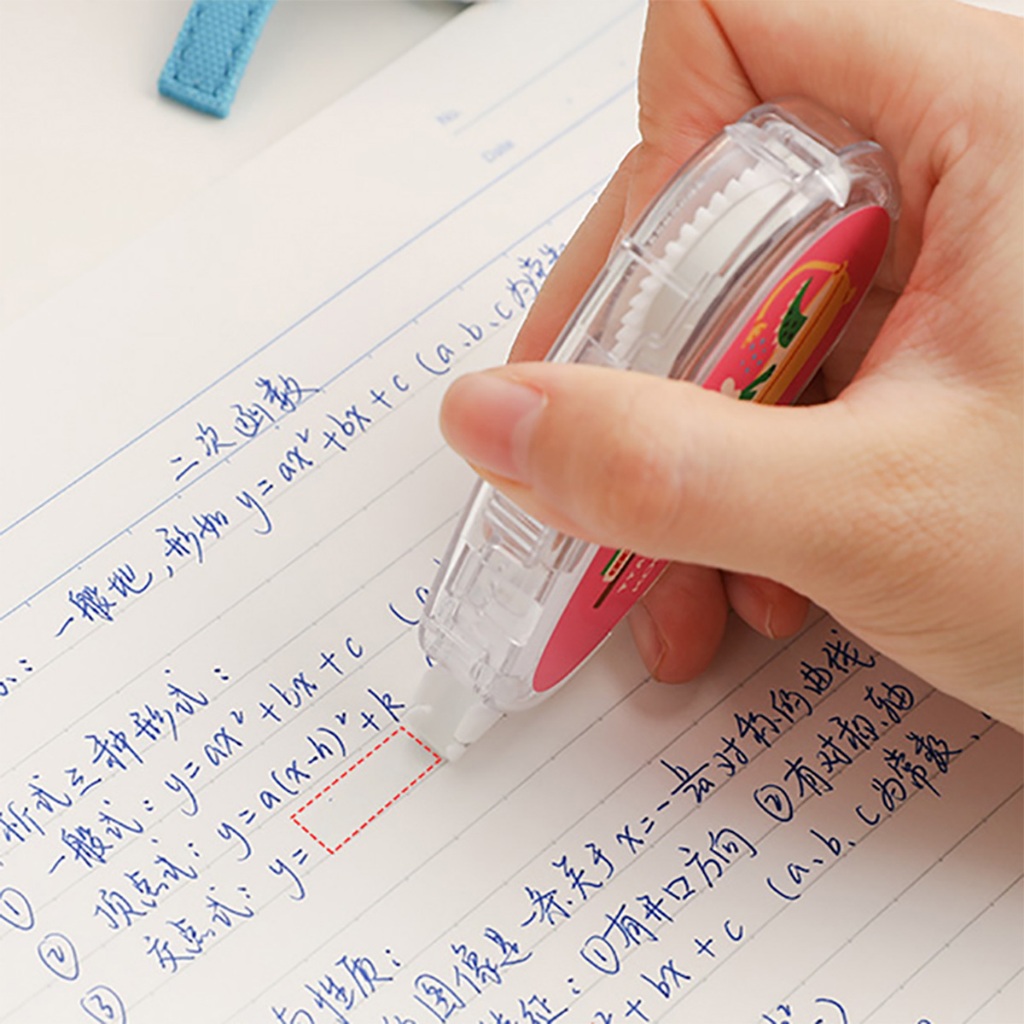 No.
Date
二次函数
一般地,形如 y=ax²+bx+c (a、b、c为常
析式三种形式:
① 一般式: y=ax²+bx+c (a
② 顶点式: y=a(x-h)²+k
③ 交点式: y=
性质:
图像是一条关于x=-b/2a对称的曲线
征: ①有开口方向 ②有对称轴
²+bx+c (a、b、c为常数、